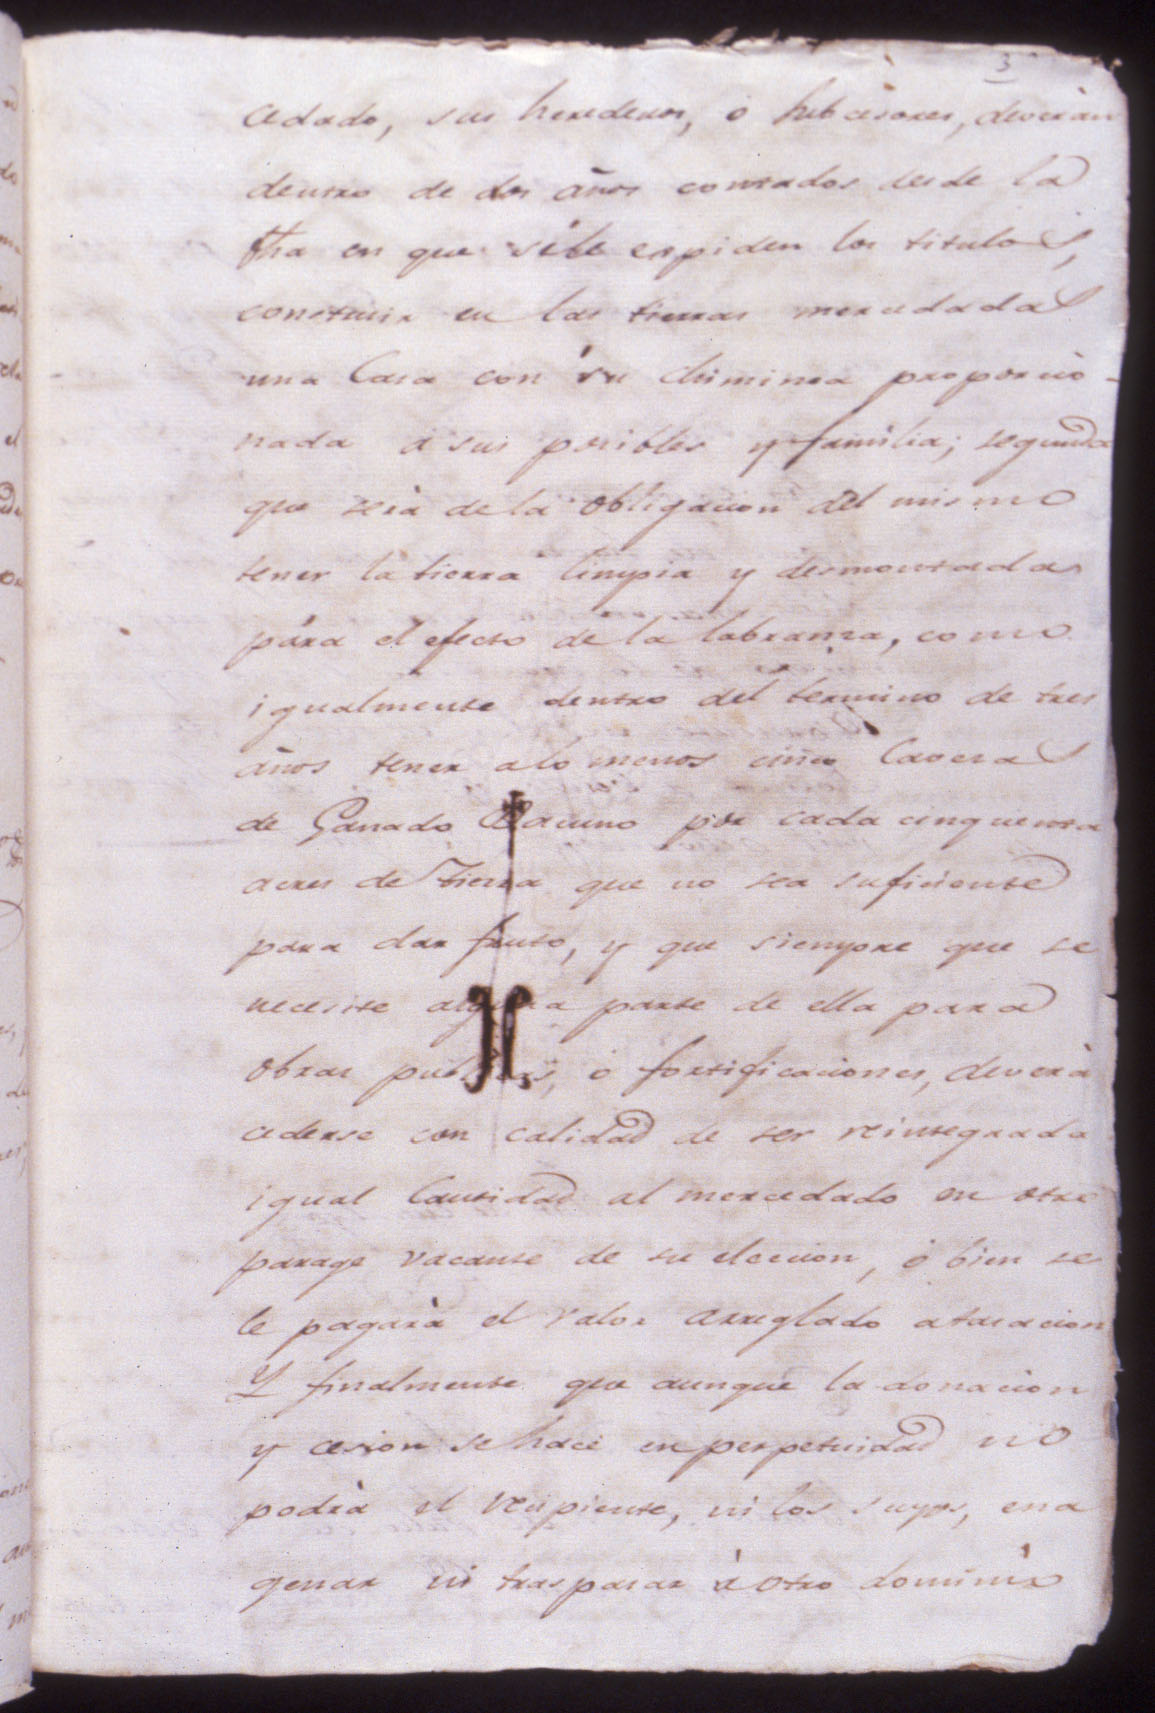 3
cedado, sus herederos, ó subcesores, deverán
dentro de dos años contados desde la
fha en que séle expiden los titulos,
construir en las tierras mercedadas
una Casa con su chiminea proporcio-
nada á sus posibles y familia; segunda
que será de la obligacion del mismo
tener la tierra limpia y desmontada
pára el efecto de la labranza, como
igualmente dentro del término de tres
años tener alo menos cinco Cavezas
de Ganado Bacuno por cada cinquenta
acres de tierra que no sea suficiente
para dar fruto, y que siempre que se
necesite alguna parte de ella para
obras publicas, ó fortificaciones, deverá
cederse con calidad de ser reintegrada
igual Cantidad al mercedado en otro
parage vacante de su eleccion, ó bien se
le pagará el valor arreglado atasacion
Y finalmente que aunque la donacion
y cesion se hace en perpetuidad no
podrá el recipiente, ni los suyos, ena
genar ni traspasar á otro dominio